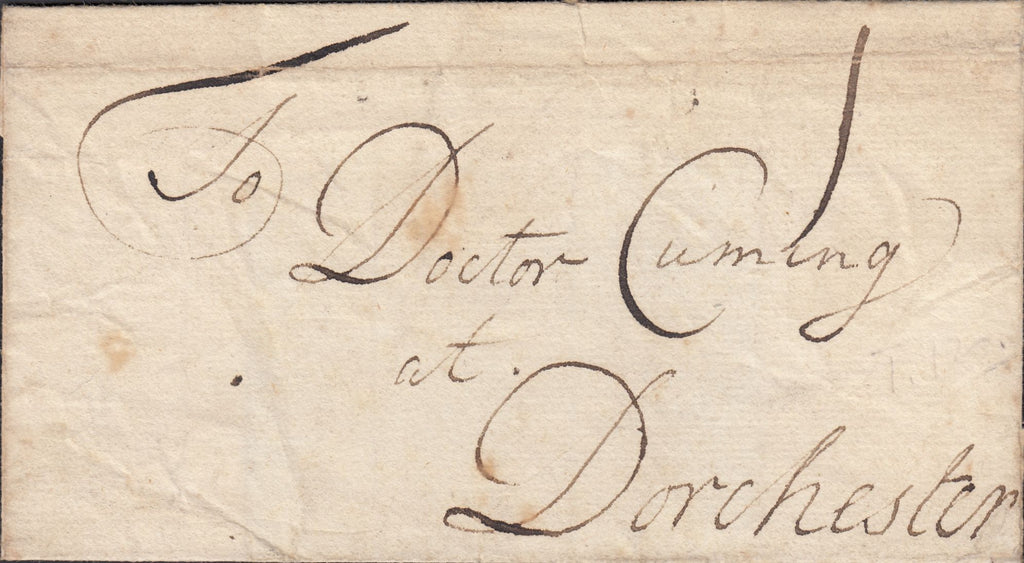 To Doctor Cuming
at.
Dorchester